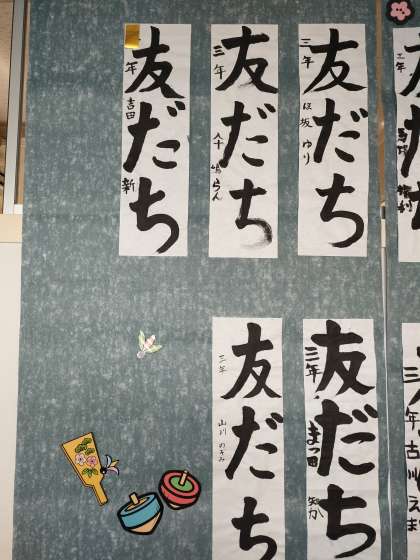 だち
三年
友だち
三年 ほ坂 ゆり
友だち
三年 八十嶋 らん
友だち
年 吉田 新
三年 古川 えま
友だち
三年 まつ田 知力
友だち
三年 山川 のぞみ